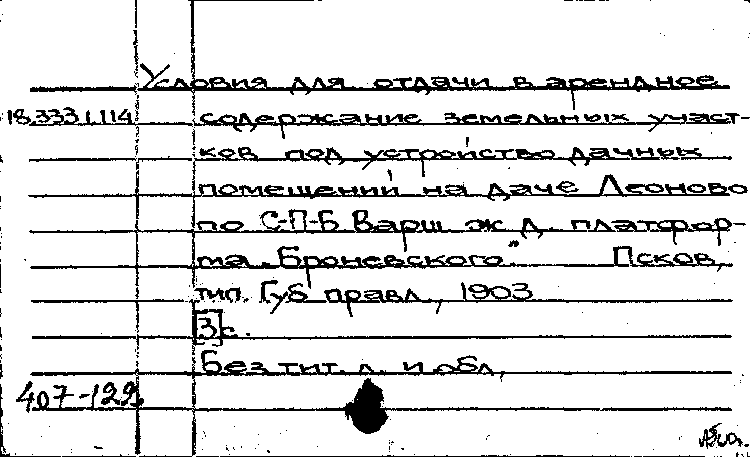 Условия для отдачи в арендное
18.333.1.114 содержание земельных участ-
ков под устройство дачных
помещений на даче Леоново
по С-П-Б Варш ж д. платфор-
ма „Броневского" Псков,
тип. Губ правл., 1903
3 с.
Без тит. л. и обл,
407-122